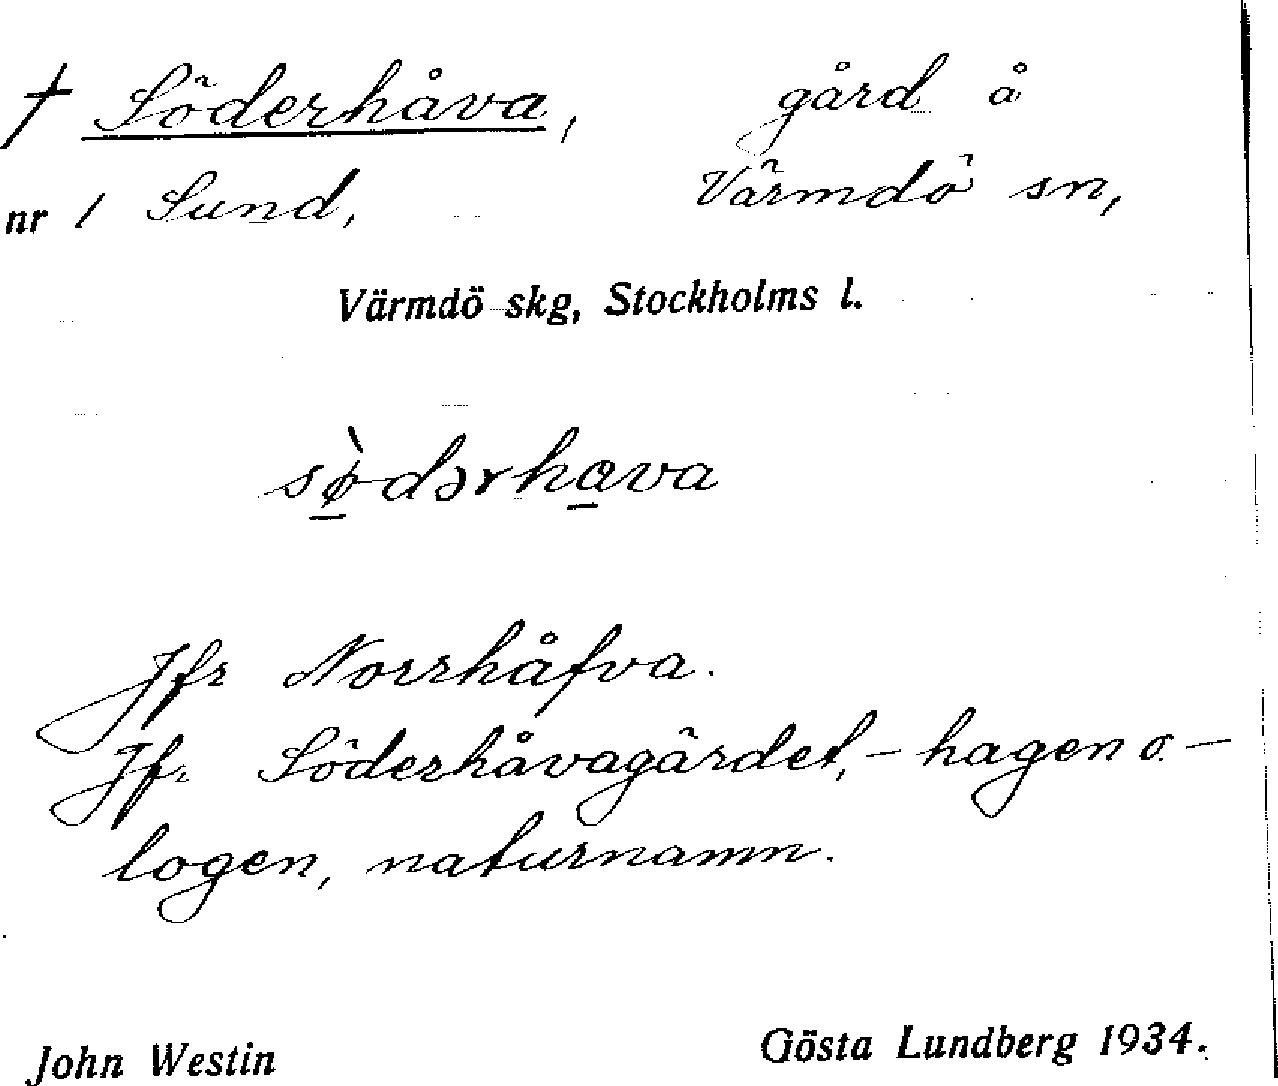 † Söderhåva, gård å
nr 1 Sund, Värmdö sn,
Värmdö skg, Stockholms l.
sø̀dərhava
Jfr Norrhåfva.
Jfr Söderhåvagärdet, - hagen o. -
logen, naturnamn.
John Westin Gösta Lundberg 1934.